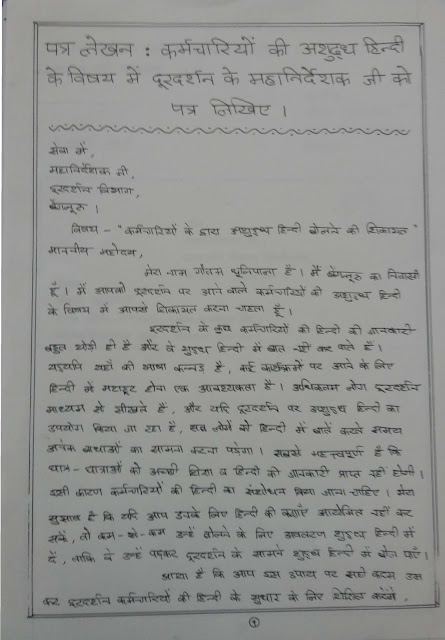 पत्र लेखन : कर्मचारियों की अशुद्ध हिन्दी
के विषय में दूरदर्शन के महानिर्देशक जी को
पत्र लिखिए ।
सेवा में,
महानिर्देशक जी,
दूरदर्शन विभाग,
बेंगलूरु ।
विषय - "कर्मचारियों के द्वारा अशुद्ध हिन्दी बोलने की शिकायत"
माननीय महोदय,
मेरा नाम गौतम धूलिपाला है । मैं बेंगलूरु का निवासी
हूँ । मैं आपको दूरदर्शन पर आने वाले कर्मचारियों की अशुद्ध हिन्दी
के विषय में आपसे शिकायत करना चाहता हूँ ।
दूरदर्शन के कुछ कर्मचारियों को हिन्दी की जानकारी
बहुत थोड़ी ही है और वे शुद्ध हिन्दी में बात नहीं कर पाते हैं ।
यद्यपि यहाँ की भाषा कन्नड़ है, कई कार्यक्रमों पर आने के लिए
हिन्दी में होना एक आवश्यकता है । अधिकतम लोग दूरदर्शन
माध्यम से सीखते हैं, और यदि दूरदर्शन पर अशुद्ध हिन्दी का
उपयोग किया जा रहा है, सब लोगों को हिन्दी में बातें करते समय
अनेक बाधाओं का सामना करना पड़ेगा । सबसे महत्त्वपूर्ण है कि
छात्र - छात्राओं को अच्छी शिक्षा व हिन्दी की जानकारी प्राप्त नहीं होगी ।
इसी कारण कर्मचारियों की हिन्दी का संशोधन किया जाना चाहिए । मेरा
सुझाव है कि यदि आप उनके लिए हिन्दी की कक्षाएँ आयोजित नहीं कर
सकें, तो कम-से-कम उन्हें बोलने के लिए अवतरण शुद्ध हिन्दी में
दें, ताकि वे उन्हें पढ़कर दूरदर्शन के सामने शुद्ध हिन्दी में बोल पाएँ ।
आशा है कि आप इस उपाय पर सही कदम उठा
कर दूरदर्शन कर्मचारियों की हिन्दी के सुधार के लिए कोशिश करेंगे,
१